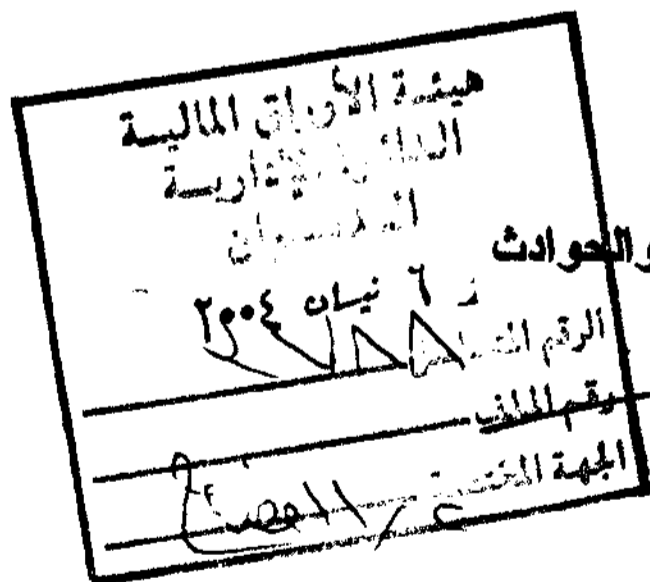 هيئة الأوراق المالية
الدائرة الإدارية
الديوان
والحوادث
٦ نيسان ٢٠٠٤
الرقم المتسلسل
رقم الملف
الجهة المختصة